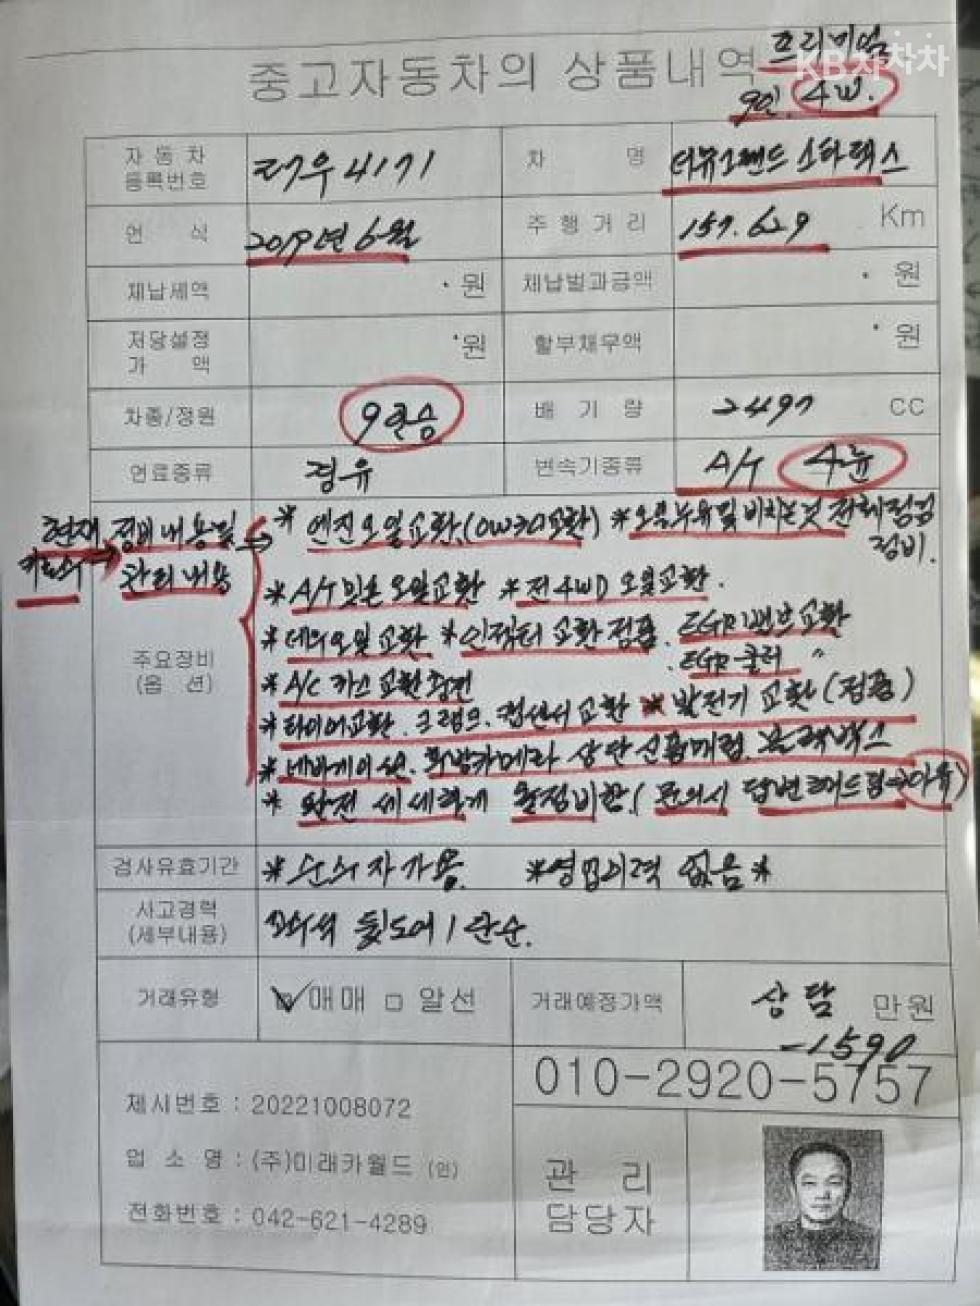 프리미엄
KB차차차
중고자동차의 상품내역
9인. 4W.
자동차 등록번호 27우4171 차 명 더뉴그랜드 스타렉스
연 식 2019년 6월 주행거리 157.629 Km
체납세액 원 체납벌과금액 원
저당설정가액 원 할부채무액 원
차종/정원 9인승 배기량 2497 CC
연료종류 경유 변속기종류 A/T 4륜
현재 정비내용및
관리내용
주요장비
(옵 션)
* 엔진오일교환.(0W30교환) *오일누유및 비치는것 전체점검
정비.
* A/T 밋숀 오일교환 *전 4WD 오일교환.
* 데후오일교환 *인젝터 교환점품. EGR밸브교환
. EGR 쿨러 〃
* A/C 가스교환충전
* 타이어교환. 크랭크. 캠센서교환 * 발전기 교환(정품)
* 네비게이션. 후방카메라 상단 신품매립. 블랙박스
* 완전 세세하게 올정비함. (문의시 답변해드림
검사유효기간 *순수자가용. *영업이력 없음*
사고경력
(세부내용) 좌측 뒷도어 1 단순.
거래유형 ☑매매 □알선 거래예정가액 상담 만원
-1590
010-2920-5757
제시번호 : 20221008072
업 소 명 : (주)미래카월드 (인)
전화번호 : 042-621-4289
관 리
담당자